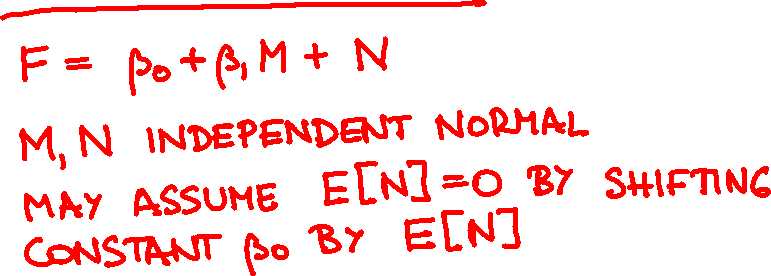 F = β₀ + β₁ M + N
M, N INDEPENDENT NORMAL
MAY ASSUME E[N] = 0 BY SHIFTING
CONSTANT β₀ BY E[N]